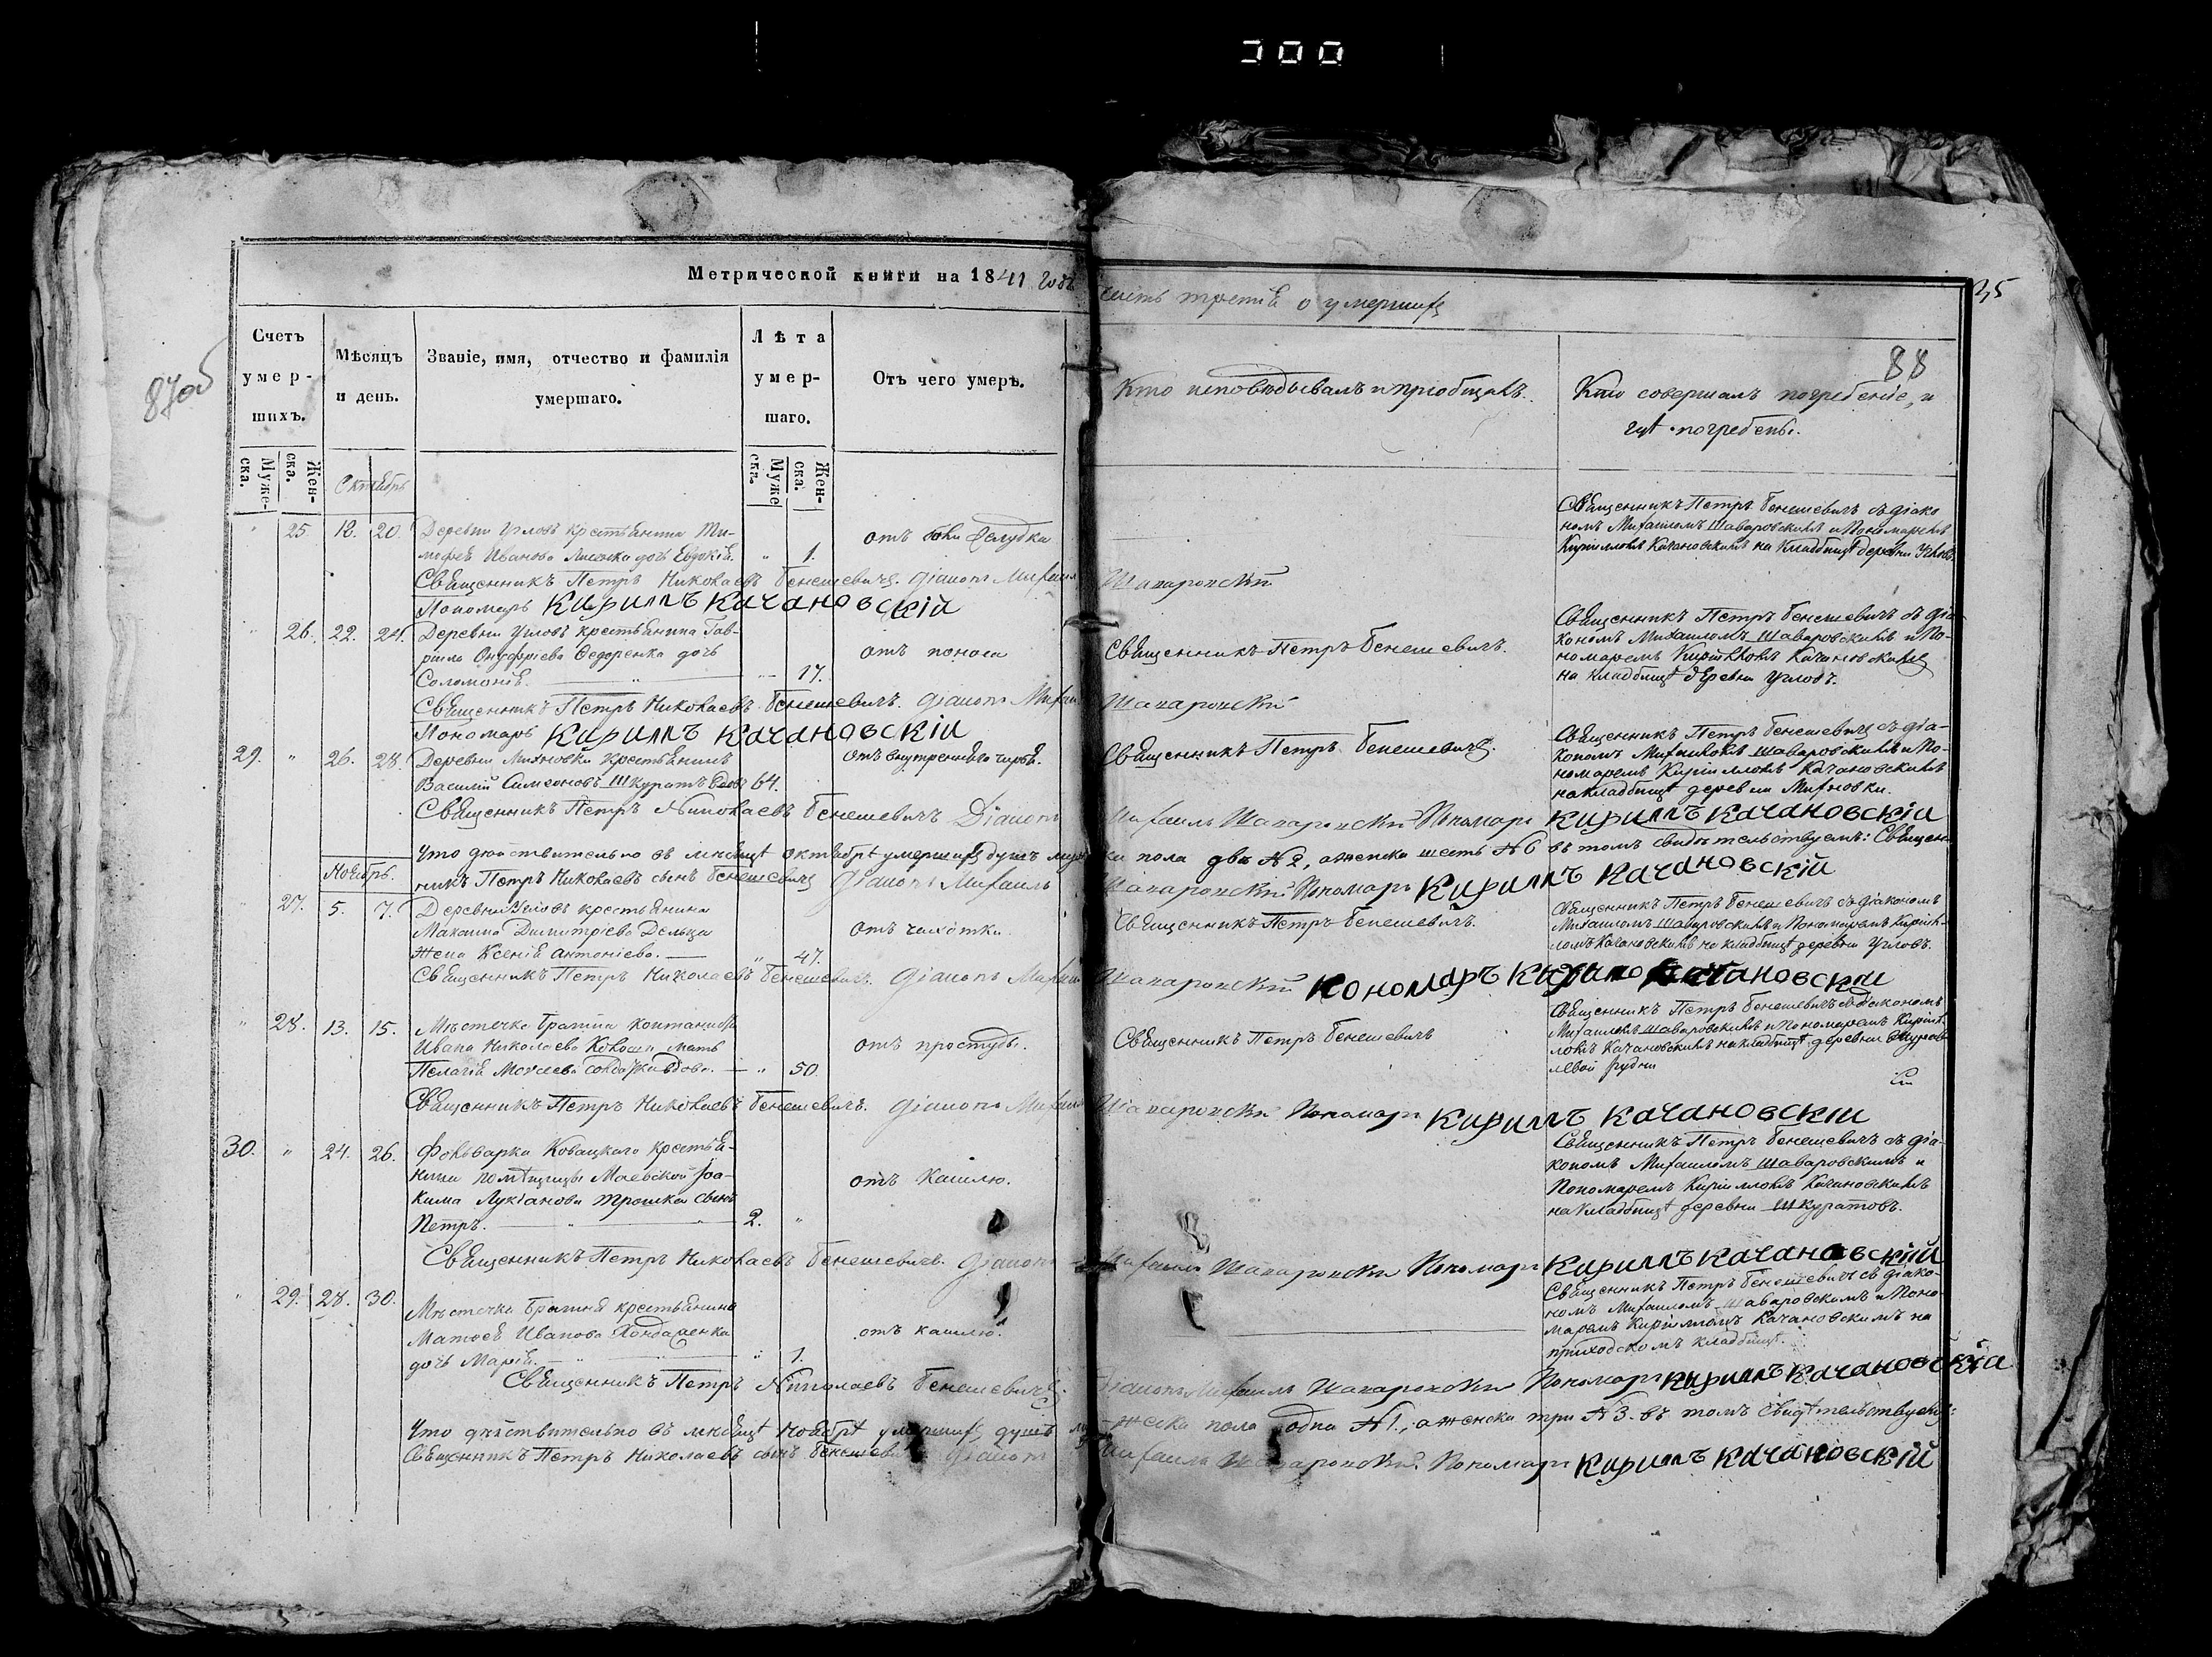 300
Метрической книги на 1841 годъ
часть третія о умершихъ
35
87об
88
Счетъ умер-шихъ.
Мѣсяцъ и день.
Званіе, имя, отчество и фамилія умершаго.
Лѣта умер-шаго.
Отъ чего умеръ.
Кто исповѣдывалъ и пріобщалъ.
Кто совершалъ погребеніе, и
гдѣ погребены.
Муже-ска.
Жен-ска.
Октябрь
Муже-ска.
Жен-ска.
" 25. 18. 20.
Деревни Угловъ крестьянина Ти-
мофея Иванова дочь Евдокія. " 1.
отъ боли желудка
Священникъ Петръ Бенешевичъ съ діако
номъ Михаиломъ Шаваровскимъ и Пономаремъ
Кирилломъ Качановскимъ на кладбищѣ деревни Угловъ
Священникъ Петръ Николаевъ Бенешевичъ. Діаконъ Михаилъ Шаваровскій
Пономарь Кириллъ Качановскій
" 26. 22. 24.
Деревни Угловъ крестьянина Гав-
риила Онуфріева Федоренка дочь
Соломонія. " 17.
отъ поноса
Священникъ Петръ Бенешевичъ.
Священникъ Петръ Бенешевичъ съ діа-
кономъ Михаиломъ Шаваровскимъ и По-
номаремъ Кирилломъ Качановскимъ
на кладбищѣ деревни Угловъ.
Священникъ Петръ Николаевъ Бенешевичъ. Діаконъ Михаилъ Шаваровскій
Пономарь Кириллъ Качановскій
29. " 26. 28.
Деревни Михновки крестьянинъ
Василій Симеоновъ Шкуратъ вдовъ 64.
отъ внутренняго чирья.
Священникъ Петръ Бенешевичъ.
Священникъ Петръ Бенешевичъ съ діа-
кономъ Михаиломъ Шаваровскимъ и По-
номаремъ Кирилломъ Качановскимъ
на кладбищѣ деревни Михновки.
Священникъ Петръ Николаевъ Бенешевичъ Діаконъ Михаилъ Шаваровскій Пономарь Кириллъ Качановскій
Что дѣйствительно въ мѣсяцѣ октябрѣ умершихъ душъ мужеска пола два №2, а женска шесть №6 въ томъ свидѣтельствуемъ: Священ-
никъ Петръ Николаевъ сынъ Бенешевичъ Діаконъ Михаилъ Шаваровскій Пономарь Кириллъ Качановскій
Ноябрь.
" 27. 5. 7.
Деревни Угловъ крестьянина
Максима Димитріева Дельца
жена Ксенія Антоніева. " 47.
отъ чахотки
Священникъ Петръ Бенешевичъ.
Священникъ Петръ Бенешевичъ съ діакономъ
Михаиломъ Шаваровскимъ и Пономаремъ Кирил-
ломъ Качановскимъ на кладбищѣ деревни Угловъ.
Священникъ Петръ Николаевъ Бенешевичъ. Діаконъ Михаилъ Шаваровскій Пономаръ Кирило Качановскій
" 28. 13. 15.
Мѣстечка Брагина
Ивана Николаева мать
Пелагія Моисеева вдова. " 50.
отъ простуды.
Священникъ Петръ Бенешевичъ
Священникъ Петръ Бенешевичъ съ діакономъ
Михаиломъ Шаваровскимъ и Пономаремъ Кирил-
ломъ Качановскимъ на кладбищѣ деревни Журав-
левой рудни
Священникъ Петръ Николаевъ Бенешевичъ. Діаконъ Михаилъ Шаваровскій Пономарь Кириллъ Качановскій
30. " 24. 26.
Фольварка Ковацкаго крестья-
нина помѣщицы Маевской Іоа-
кима Лукіанова Трошка сынъ
Петръ. " 2. "
отъ кашлю.
Священникъ Петръ Бенешевичъ съ діа-
кономъ Михаиломъ Шаваровскимъ и
Пономаремъ Кирилломъ Качановскимъ
на кладбищѣ деревни Шкуратовъ.
Священникъ Петръ Николаевъ Бенешевичъ. Діаконъ Михаилъ Шаваровскій Пономарь Кириллъ Качановскій
" 29. 28. 30.
Мѣстечка Брагина крестьянина
Матѳея Иванова Хондаренка
дочь Марія. " 1.
отъ кашлю.
Священникъ Петръ Бенешевичъ съ діако-
номъ Михаиломъ Шаваровскимъ и Поно-
маремъ Кирилломъ Качановскимъ на
приходскомъ кладбищѣ.
Священникъ Петръ Николаевъ Бенешевичъ. Діаконъ Михаилъ Шаваровскій Пономарь Кириллъ Качановскій
Что дѣйствительно въ мѣсяцѣ Ноябрѣ умершихъ душъ мужеска пола одна №1, а женска три №3. въ томъ свидѣтельствуемъ:
Священникъ Петръ Николаевъ сынъ Бенешевичъ Діаконъ Михаилъ Шаваровскій. Пономарь Кириллъ Качановскій